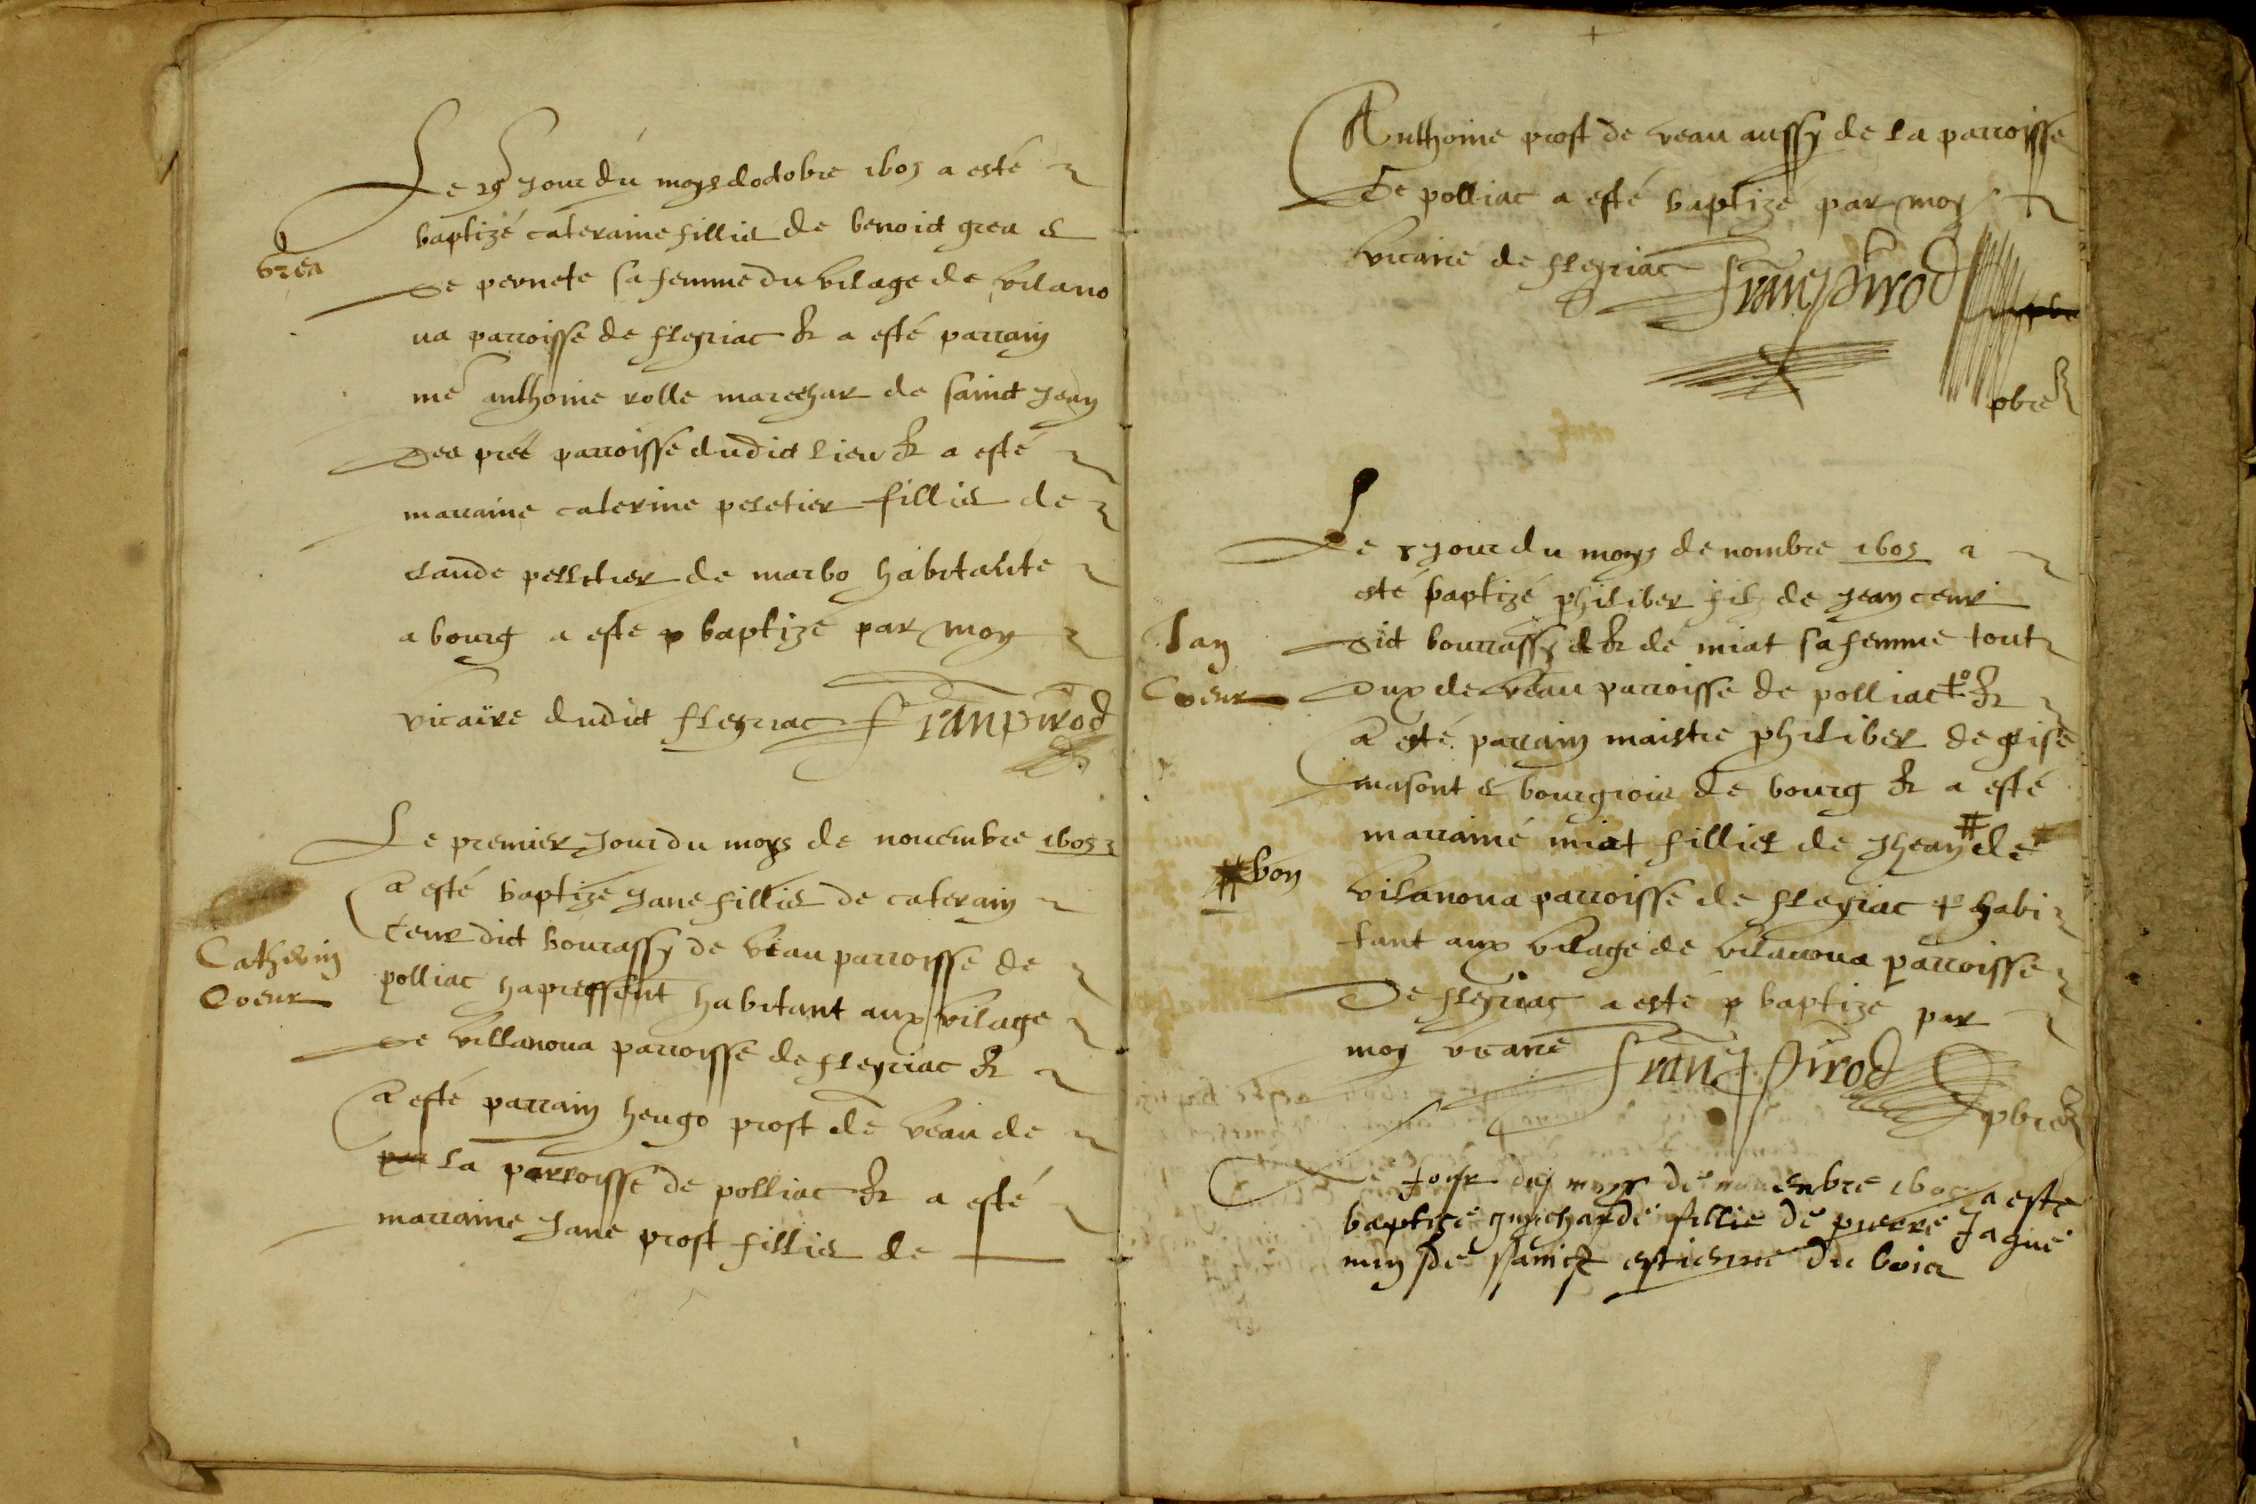 Le 29 Jour du moys doctobre 1605 a esté
baptizé cateraine fillie de benoict grea et
grea
de pernete sa femme du vilage de vilano
va parroisse de fleyriac & a esté parrain
me anthoine rolle mareschar de sainct Jean
des pres parroisse dudict lieu & a esté
marraine caterine peletier fillie de
claude pelletier de marbo habitante
a bourg a esté p baptizé par moy
vicaire dudict fleyriac Fran pirod
Le premier Jour du moys de novembre 1605
a esté baptizé Jane fillie de caterain
Catherin
Coeur
ceur dict bourrassy de veau parroisse de
polliac hapressent habitant aux vilage
de villanova parroisse de fleyriac &
a esté parrain heugo prost de veau de
par la parroisse de polliac & a esté
marraine Jane prost fillie de
Anthoine prost de veau aussy de la parroisse
de polliac a esté baptizé par moy
vicaire de fleyriac Fran pirod
pbre
Le Jour du moys de nombre 1605 a
esté baptizé philiber filz de Jean ceur
Jan
Coeur
dict bourrassy & de miat sa femme tout
dux de veau parroisse de polliac &
a esté parrain maistre philiber de
masont et bourgiois de bourg & a esté
marraine miat fillie de Jhean # de
# bon
vilanova parroisse de fleyriac habi
tant aux vilage de vilanova parroisse
de fleyriac a esté p baptizé par
moy vicaire Fran pirod
pbre
Le Jour du moys de novembre 1605 a esté
baptizé guicharde fillie de pierre Jaque
min de sainct estienne du bois